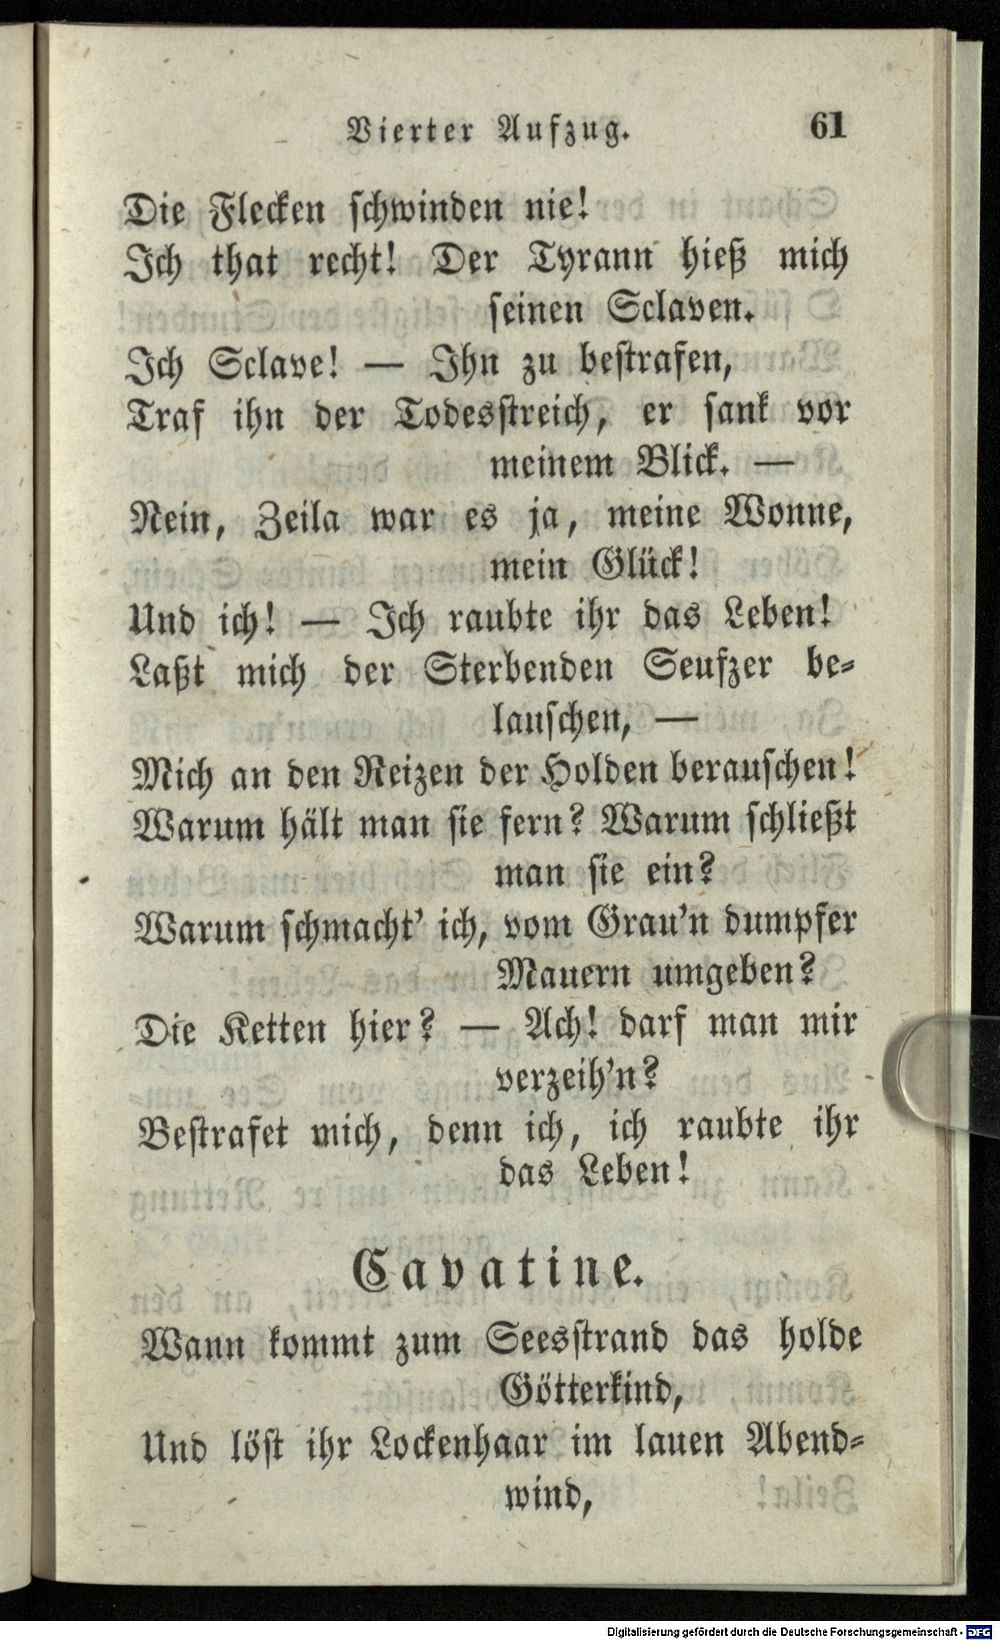 Vierter Aufzug. 61
Die Flecken schwinden nie!
Ich that recht! Der Tyrann hieß mich
seinen Sclaven.
Ich Sclave! — Ihn zu bestrafen,
Traf ihn der Todesstreich, er sank vor
meinem Blick. —
Nein, Zeila war es ja, meine Wonne,
mein Glück!
Und ich! — Ich raubte ihr das Leben!
Laßt mich der Sterbenden Seufzer be-
lauschen, —
Mich an den Reizen der Holden berauschen!
Warum hält man sie fern? Warum schließt
man sie ein?
Warum schmacht' ich, vom Grau'n dumpfer
Mauern umgeben?
Die Ketten hier? — Ach! darf man mir
verzeih'n?
Bestrafet mich, denn ich, ich raubte ihr
das Leben!
Cavatine.
Wann kommt zum Seesstrand das holde
Götterkind,
Und löst ihr Lockenhaar im lauen Abend-
wind,
Digitalisierung gefördert durch die Deutsche Forschungsgemeinschaft - DFG